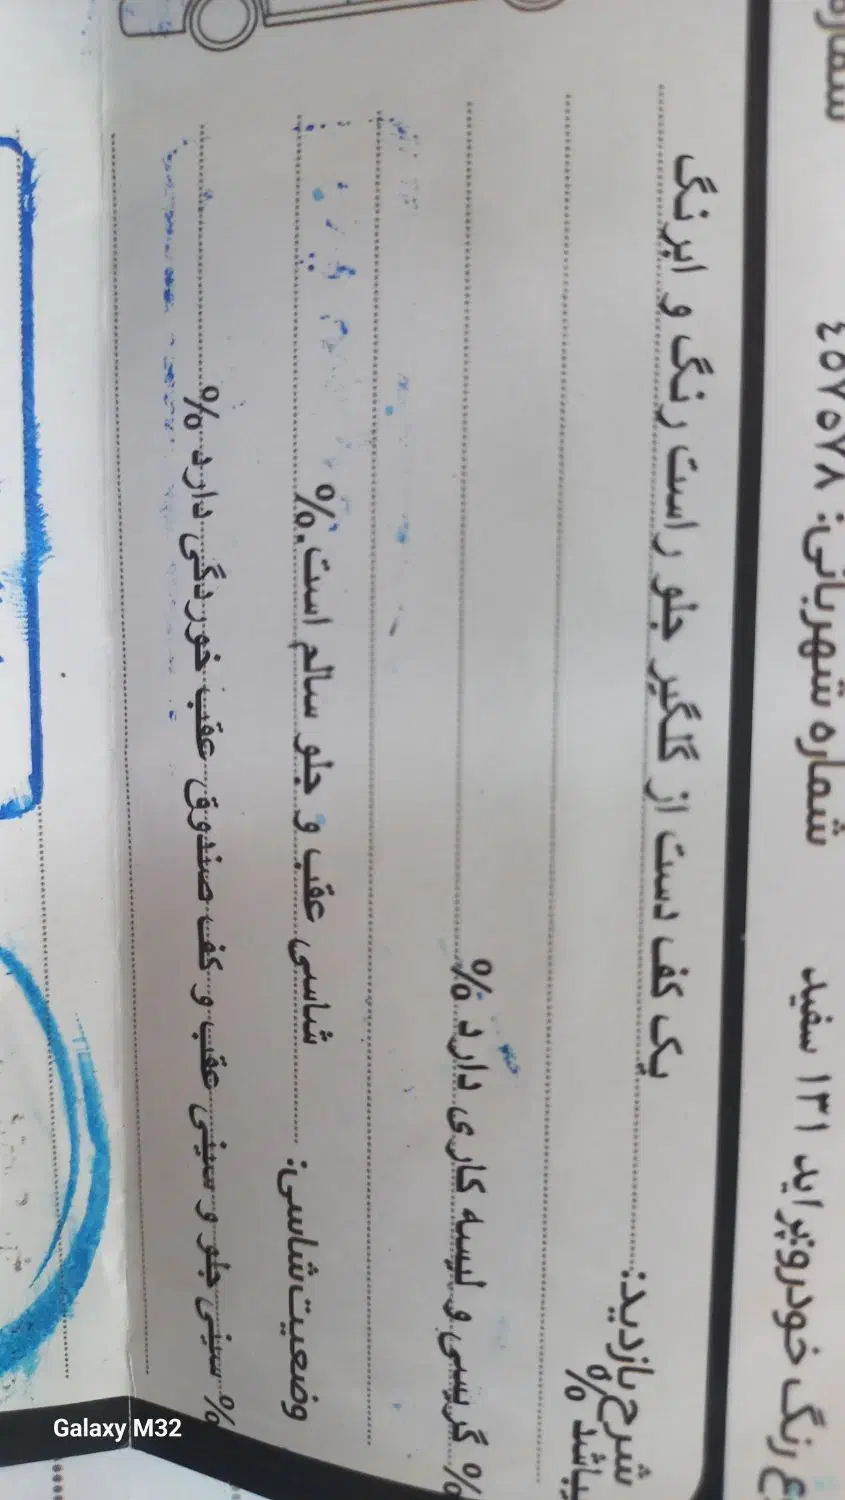 شماره
رنگ خودرو پراید ۱۳۱ سفید شماره شهربانی: ٤٥٧٥٧٨
شرح بازدید: یک کف دست از گلگیر جلو راست رنگ و ابرنگ
میباشد %
% گریسی و لیسه کاری دارد %
وضعیت شاسی: شاسی عقب و جلو سالم است.%
% سینی جلو و سینی عقب و کف صندوق عقب خوردگی دارد %
Galaxy M32